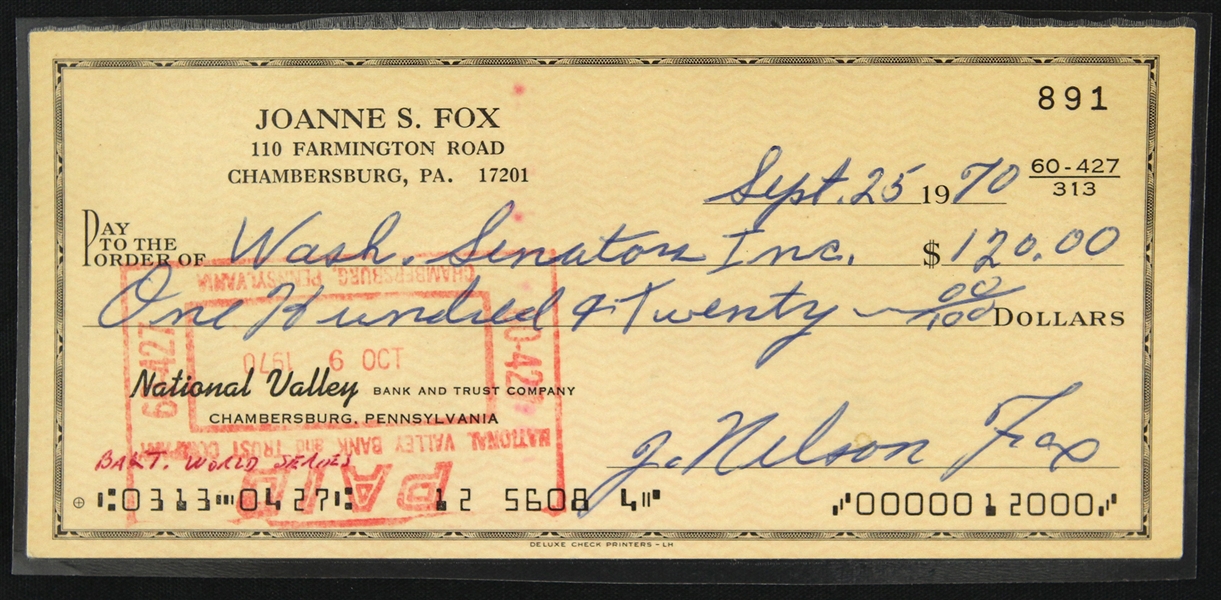 891
JOANNE S. FOX
110 FARMINGTON ROAD
CHAMBERSBURG, PA. 17201
Sept. 25 1970 60-427/313
PAY TO THE ORDER OF Wash. Senators Inc. $ 120.00
One Hundred & Twenty — 00/100 DOLLARS
CHAMBERSBURG, PENNSYLVANIA
60-427
60-427
OCT 9 1970
NATIONAL VALLEY BANK and TRUST COMPANY
PAID
National Valley BANK AND TRUST COMPANY
CHAMBERSBURG, PENNSYLVANIA
J. Nelson Fox
BALT. WORLD SERIES
⑆0313⑉0427⑆ 12 5608 4⑈ ⑇0000012000⑇
DELUXE CHECK PRINTERS - LH